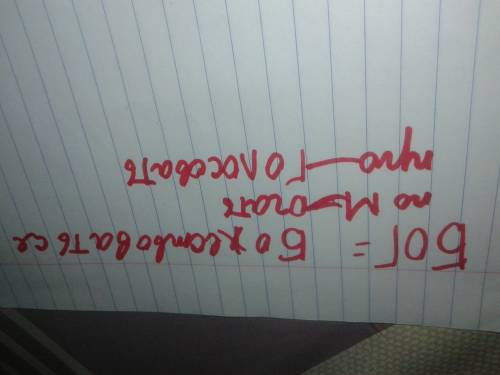 БОГ = Божествоваться
по М-огать
про-Голосовать